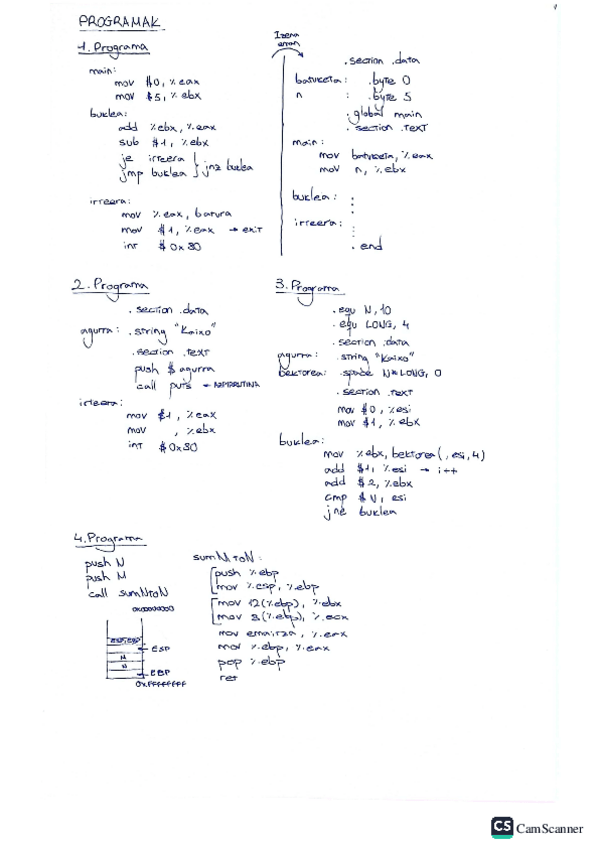 PROGRAMAK
1. Programa
main:
mov $0, %eax
mov $5, %ebx
buklea:
add %ebx, %eax
sub $1, %ebx
je irteera
jmp buklea } jnz buklea
irteera:
mov %eax, batura
mov $1, %eax → exit
int $0x80
Izena eman
.section .data
batuketa: .byte 0
n : .byte 5
.global main
.section .text
main:
mov batuketa, %eax
mov n, %ebx
buklea: ⋮
irteera: ⋮
.end
2. Programa
.section .data
agurra: .string "Kaixo"
.section .text
push $agurra
call puts ← AZPIERRUTINA
irteera:
mov $1, %eax
mov , %ebx
int $0x80
3. Programa
.equ N, 10
.equ LONG, 4
.section .data
agurra: .string "Kaixo"
bektorea: .space N*LONG, 0
.section .text
mov $0, %esi
mov $1, %ebx
buklea:
mov %ebx, bektorea(, esi, 4)
add $1, %esi → i++
add $2, %ebx
cmp $N, esi
jne buklea
4. Programa
push N
push M
call sumMtoN
0x00000000
ESP
N
EBP
0xFFFFFFFF
sumMtoN:
push %ebp
mov %esp, %ebp
mov 12(%ebp), %ebx
mov 8(%ebp), %ecx
mov emaitza, %eax
mov %ebp, %eax
pop %ebp
ret
CS CamScanner